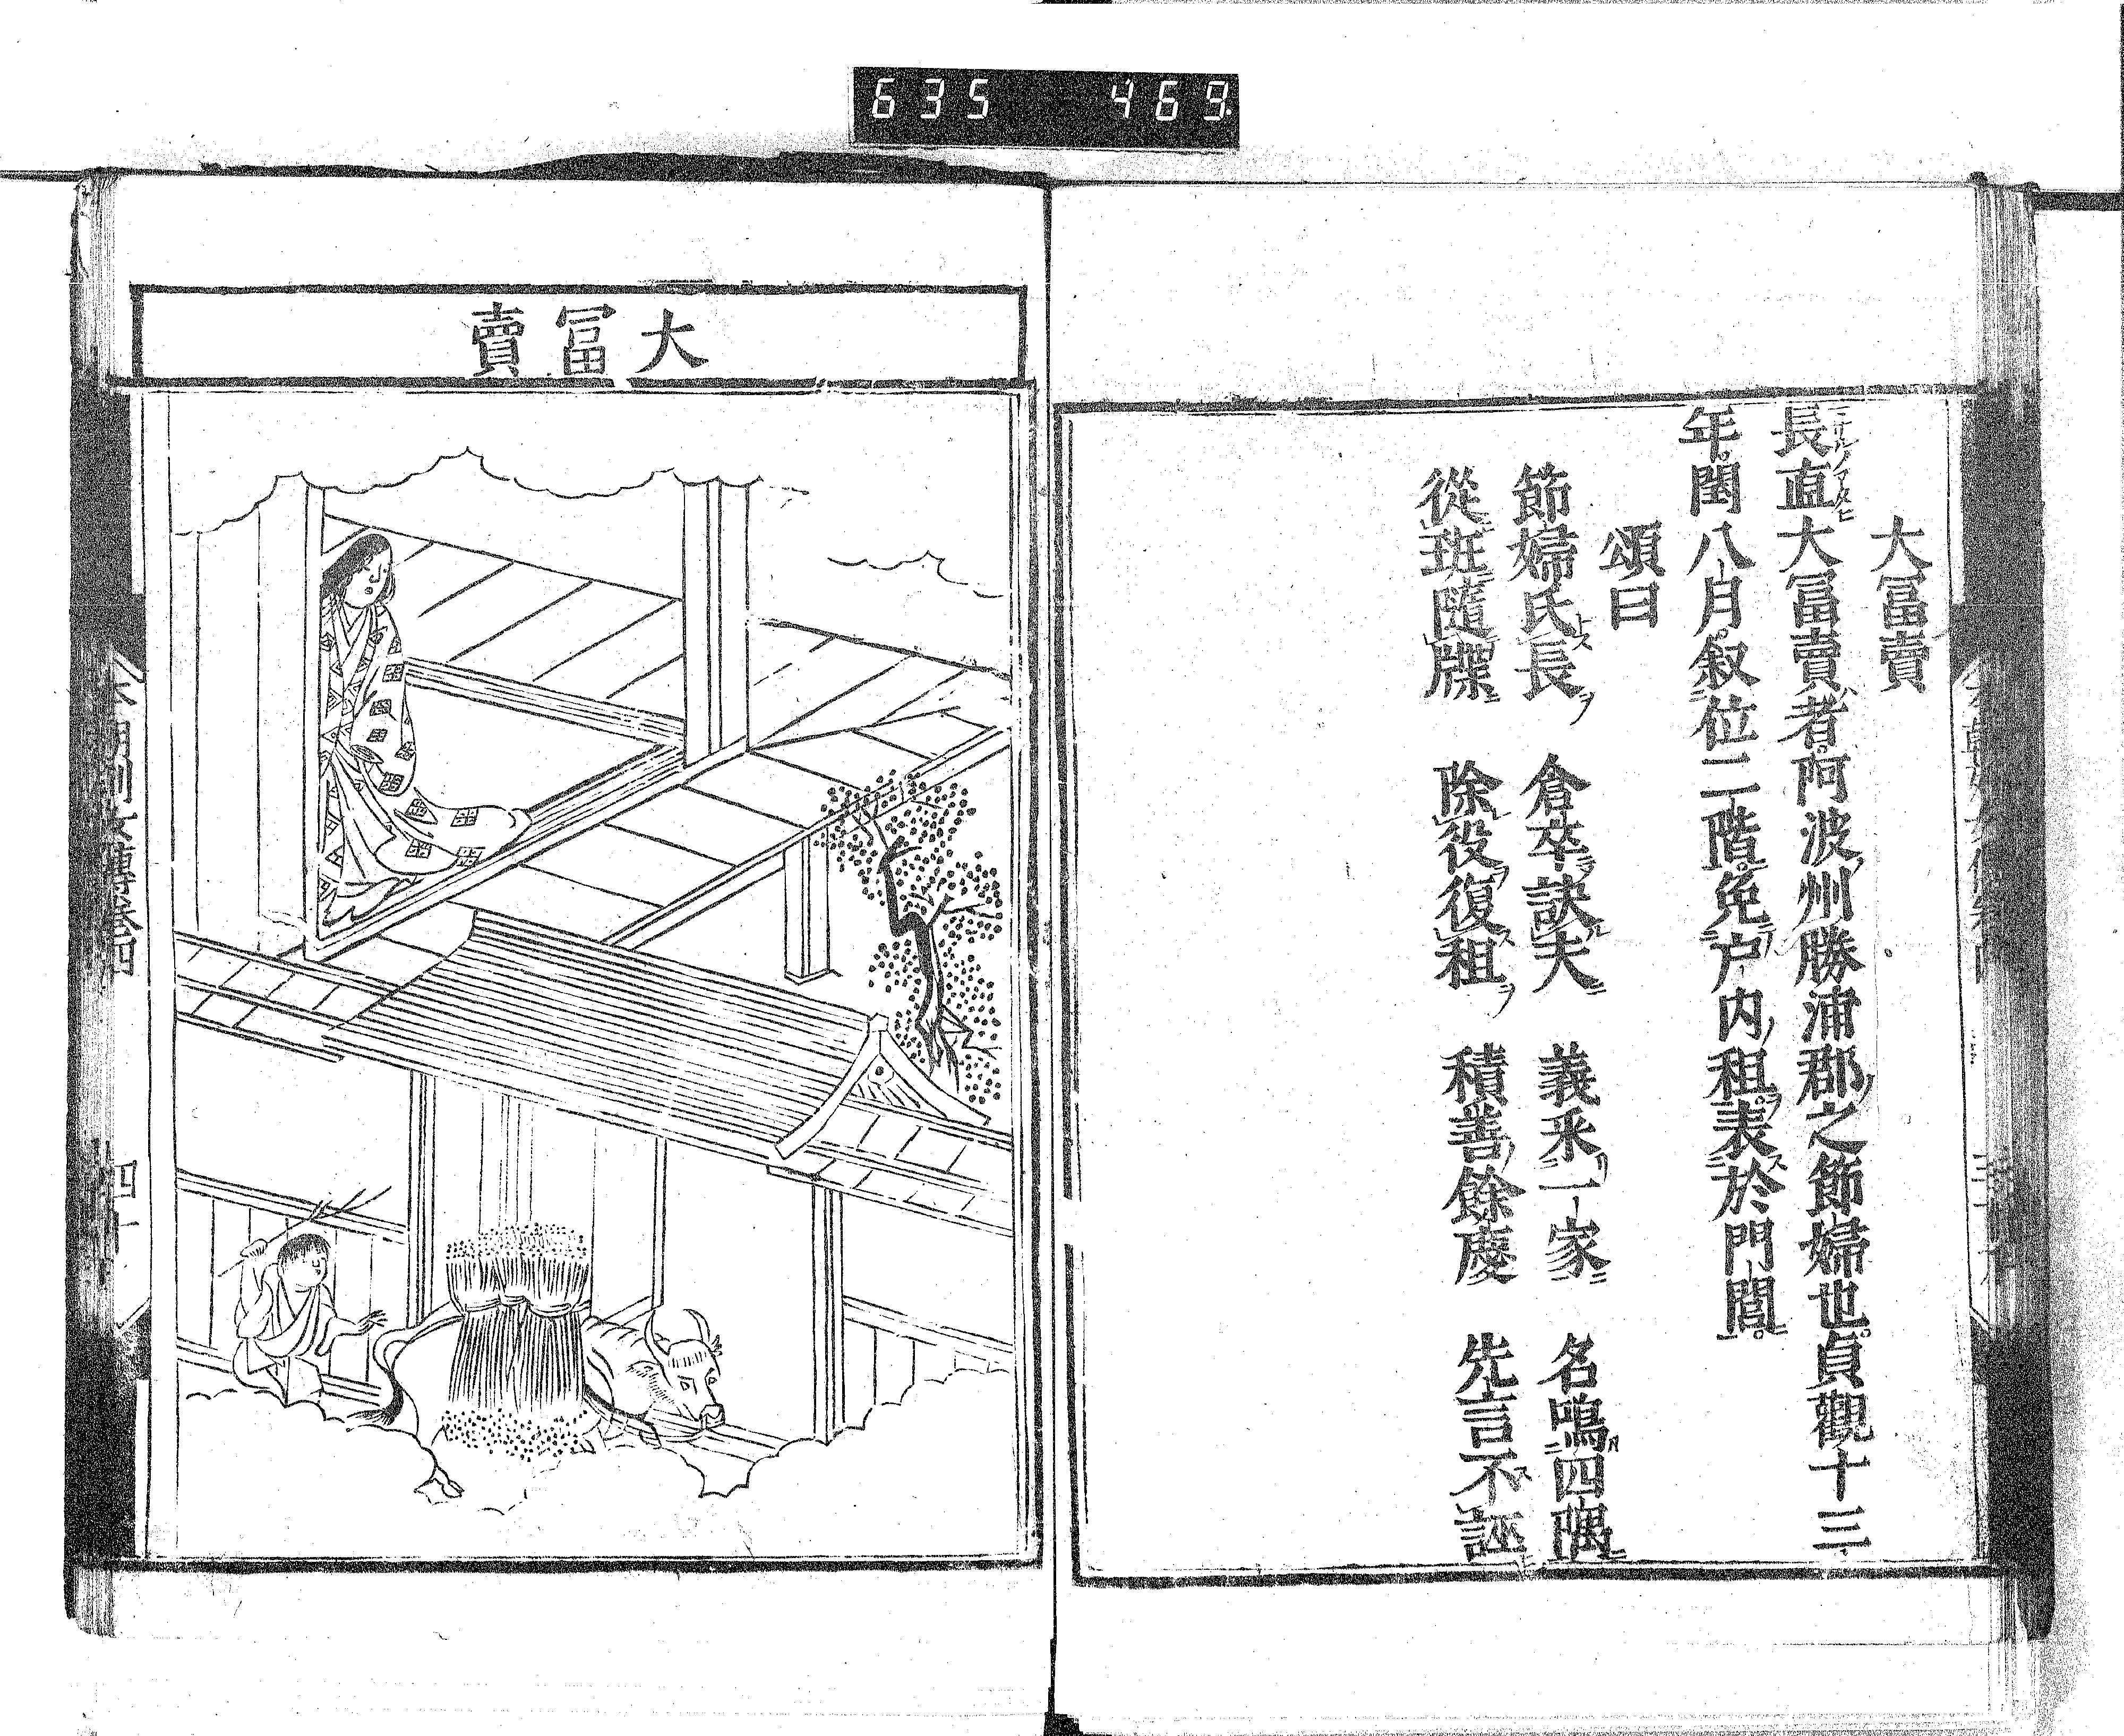 635 469
大冨賣
長直大冨賣者阿波州勝浦郡之節婦也貞觀十三
年閏八月叙位二階免户内租表於門閭
頌曰
節婦氏長 倉卒訣夫 義系一家 名鳴四隅
從班隨牒 除役復租 積善餘慶 先言不誣
大冨賣
本朝列女傳卷四 四十